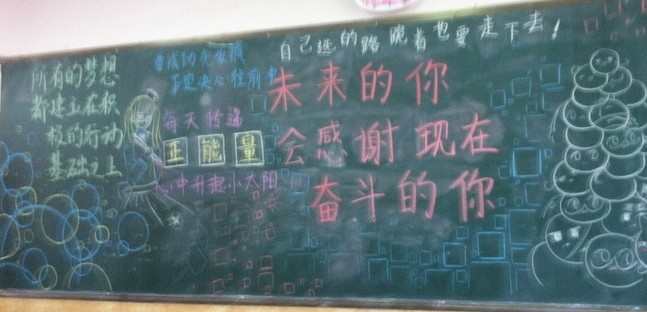 所有的梦想
都建立在积
极的行动
基础之上
每天传递
正能量
心中升起小太阳
自己选的路跪着也要走下去！
未来的你
会感谢现在
奋斗的你